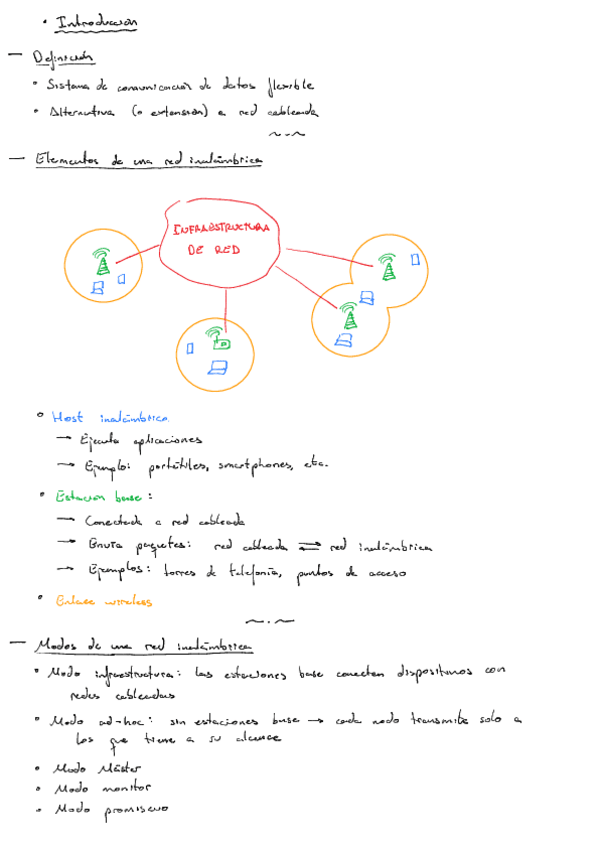 • Introducción
— Definición
• Sistema de comunicación de datos flexible
• Alternativa (o extensión) a red cableada
— Elementos de una red inalámbrica
INFRAESTRUCTURA
DE RED
• Host inalámbrico
→ Ejecuta aplicaciones
→ Ejemplo: portátiles, smartphones, etc.
• Estación base:
→ Conectada a red cableada
→ Envía paquetes: red cableada ⇌ red inalámbrica
→ Ejemplos: torres de telefonía, puntos de acceso
• Enlace wireless
— Modos de una red inalámbrica
• Modo infraestructura: las estaciones base conectan dispositivos con
redes cableadas
• Modo ad-hoc: sin estaciones base → cada nodo transmite solo a
los que tiene a su alcance
• Modo Máster
• Modo monitor
• Modo promiscuo